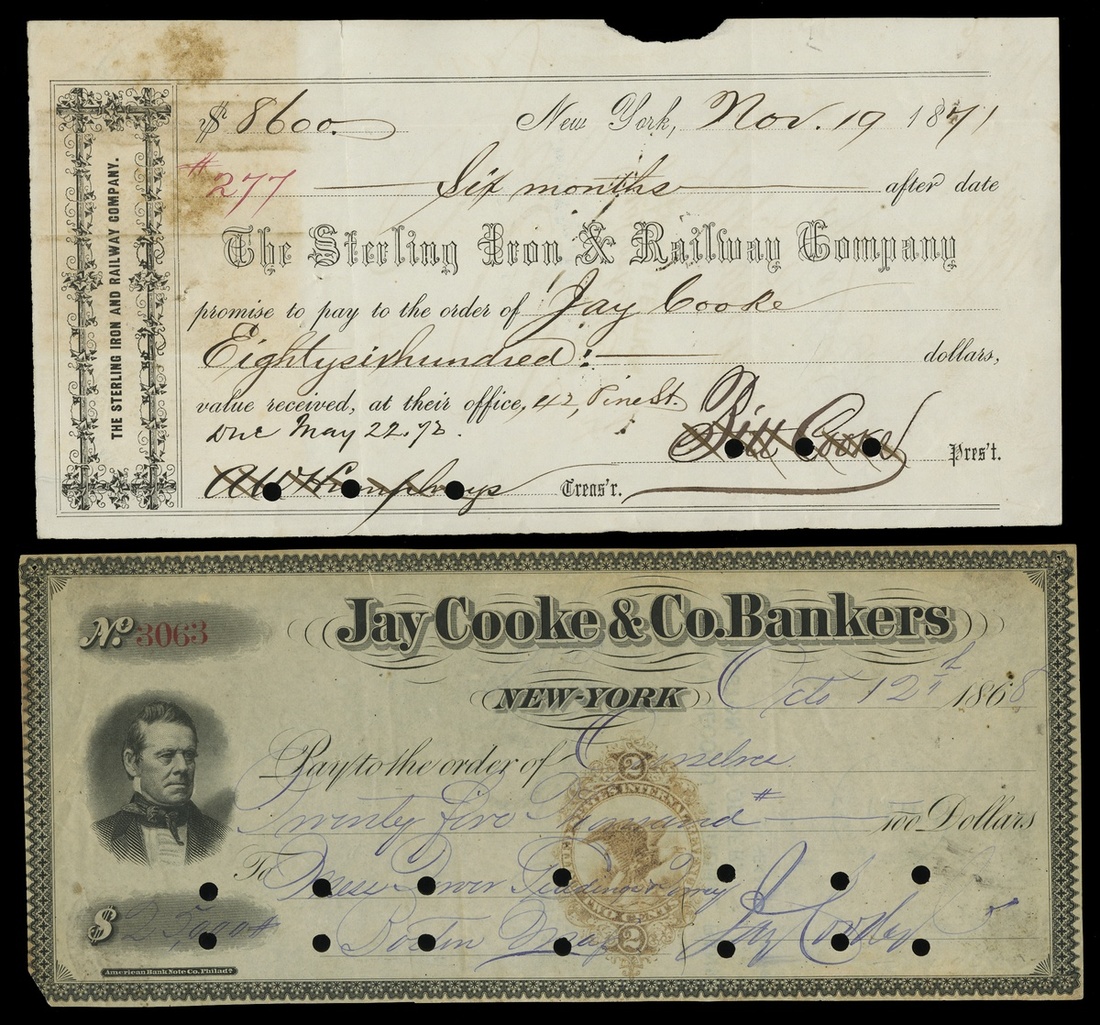 $ 8600. New York, Nov. 19 1871
#277 Six months after date
The Sterling Iron & Railway Company
promise to pay to the order of Jay Cooke
Eightysixhundred dollars,
value received, at their office, 42, Pine St.
Due May 22. 72.
Pitt Cooke Pres't.
A W Humphreys Treas'r.
THE STERLING IRON AND RAILWAY COMPANY.
No. 3063
Jay Cooke & Co. Bankers
NEW-YORK Octo 12th 1868
Pay to the order of Ourselves
Twenty five Thousand # 100 Dollars
To Mess
$ 25,000 #
Boston Mass
Jay Cooke & Co
UNITED STATES INTERNAL REVENUE
TWO CENTS
2
2
American Bank Note Co. Philada.